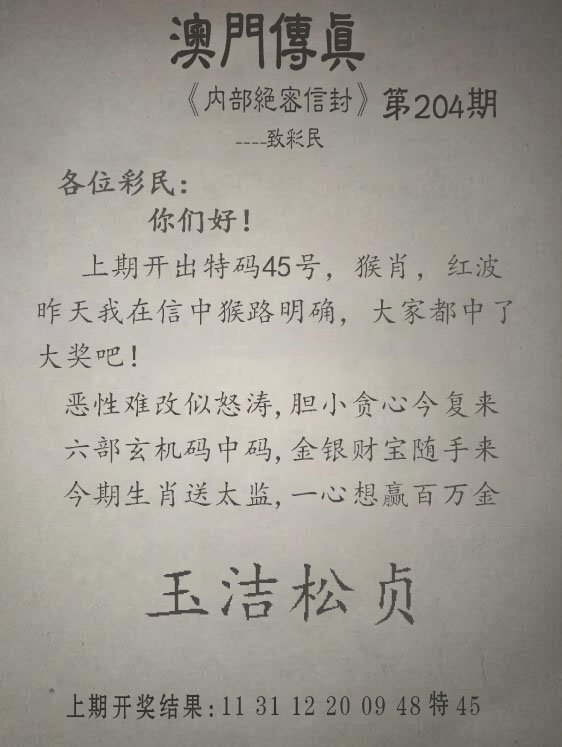 澳門傳眞
《内部絕密信封》第204期
----致彩民
各位彩民：
你们好！
上期开出特码45号，猴肖，红波
昨天我在信中猴路明确，大家都中了
大奖吧！
恶性难改似怒涛,胆小贪心今复来
六部玄机码中码,金银财宝随手来
今期生肖送太监,一心想赢百万金
玉洁松贞
上期开奖结果:11 31 12 20 09 48特45